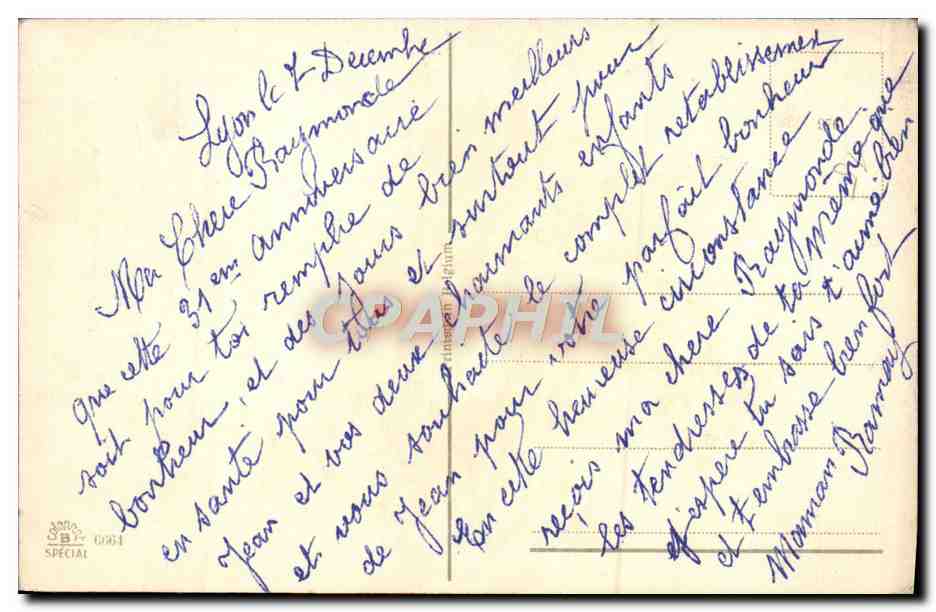 Lyon le 7 Decembre
Ma Chere Raymonde
que cette 31em anniversaire
soit pour toi remplie de
bonheur, et des jours bien meilleurs
en santé pour têtes et surtout pour
Jean et vos deux charmants enfants
et vous souhaite le complet retablissement
de Jean pour votre parfait bonheur
En cette heureuse circonstance
reçois ma chere Raymonde
les tendresses de ta mémé que
j'espere tu sais t'aime bien
et t'embrasse bien fort
Maman
CPARPHIL
Belgium
B
6664
SPÉCIAL